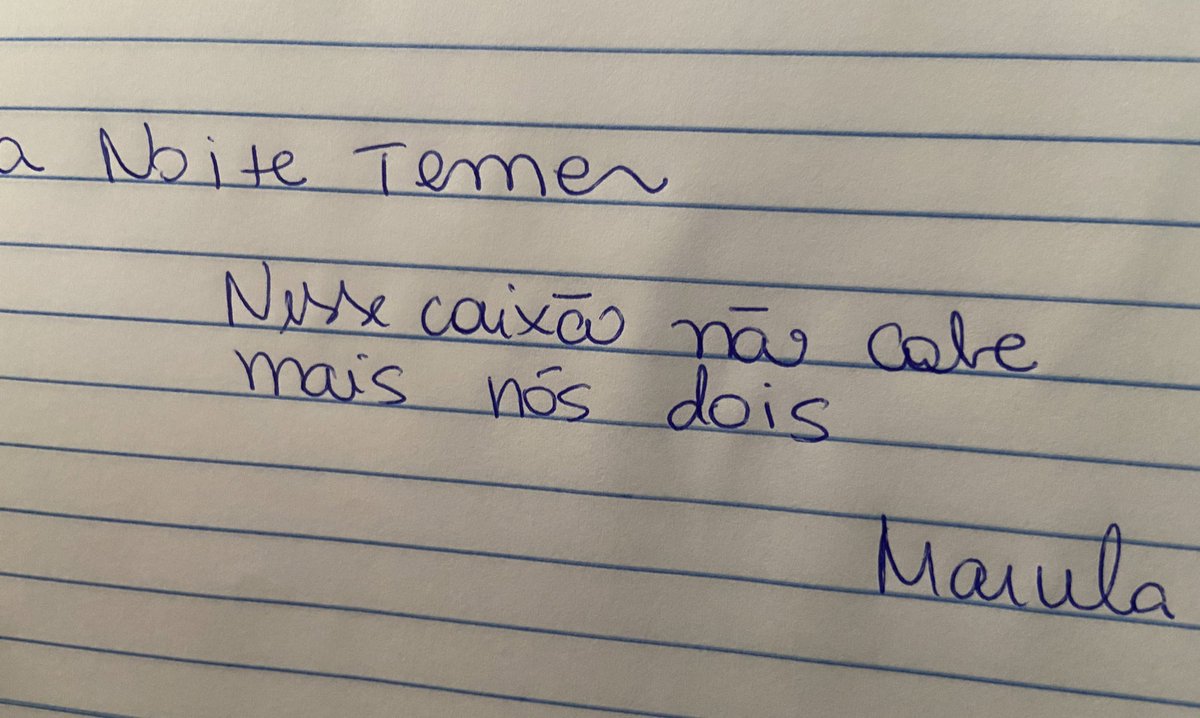 a Noite Temer
Nesse caixão não cabe
mais nós dois
Marula